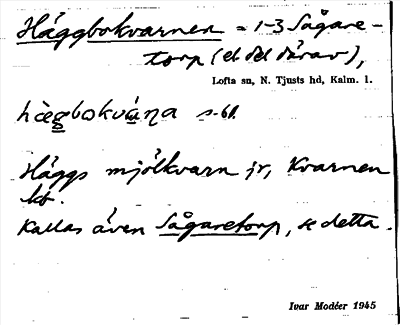 Häggbokvarnen = 1-3 Sågare-
torp (el del därav),
Lofta sn, N. Tjusts hd, Kalm. l.
hàgbokvána s. bf.
Häggs mjölkvarn jr, Kvarnen
kt.
Kallas även Sågaretorp, se detta.
Ivar Modéer 1945